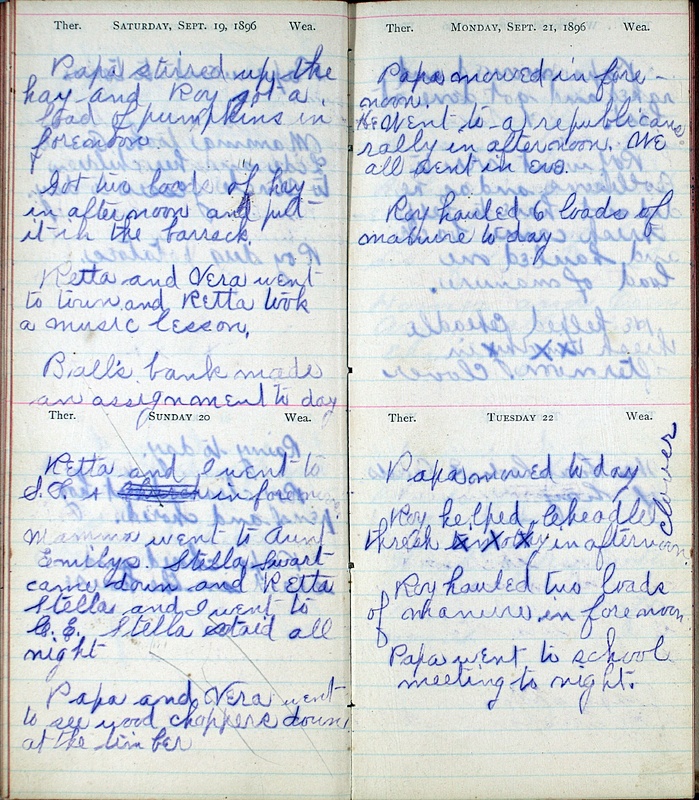 Ther. SATURDAY, SEPT. 19, 1896 Wea.
Papa stirred up the
hay and Roy got a
load of pumpkins in
forenoon
Got two loads of hay
in afternoon and put
it in the barrack.
Retta and Vera went
to town and Retta took
a music lesson.
Biall's bank made
an assignment to day
Ther. SUNDAY 20 Wea.
Retta and I went to
S.S. + in foreno
Mamma went to Aunt
Emilys. Stella Swart
came down and Retta
Stella and I went to
C.E. Stella staid all
night
Papa and Vera went
to see wood choppers down
at the timber
Ther. MONDAY, SEPT. 21, 1896 Wea.
Papa mowed in fore-
noon.
He Went to a republican
rally in afternoon. We
all went in eve.
Roy hauled 6 loads of
manure to day
Ther. TUESDAY 22 Wea.
Papa mowed to day
Roy helped Cheadle
thresh in afternoon
clover
Roy hauled two loads
of manure in forenoon
Papa went to school
meeting to night.